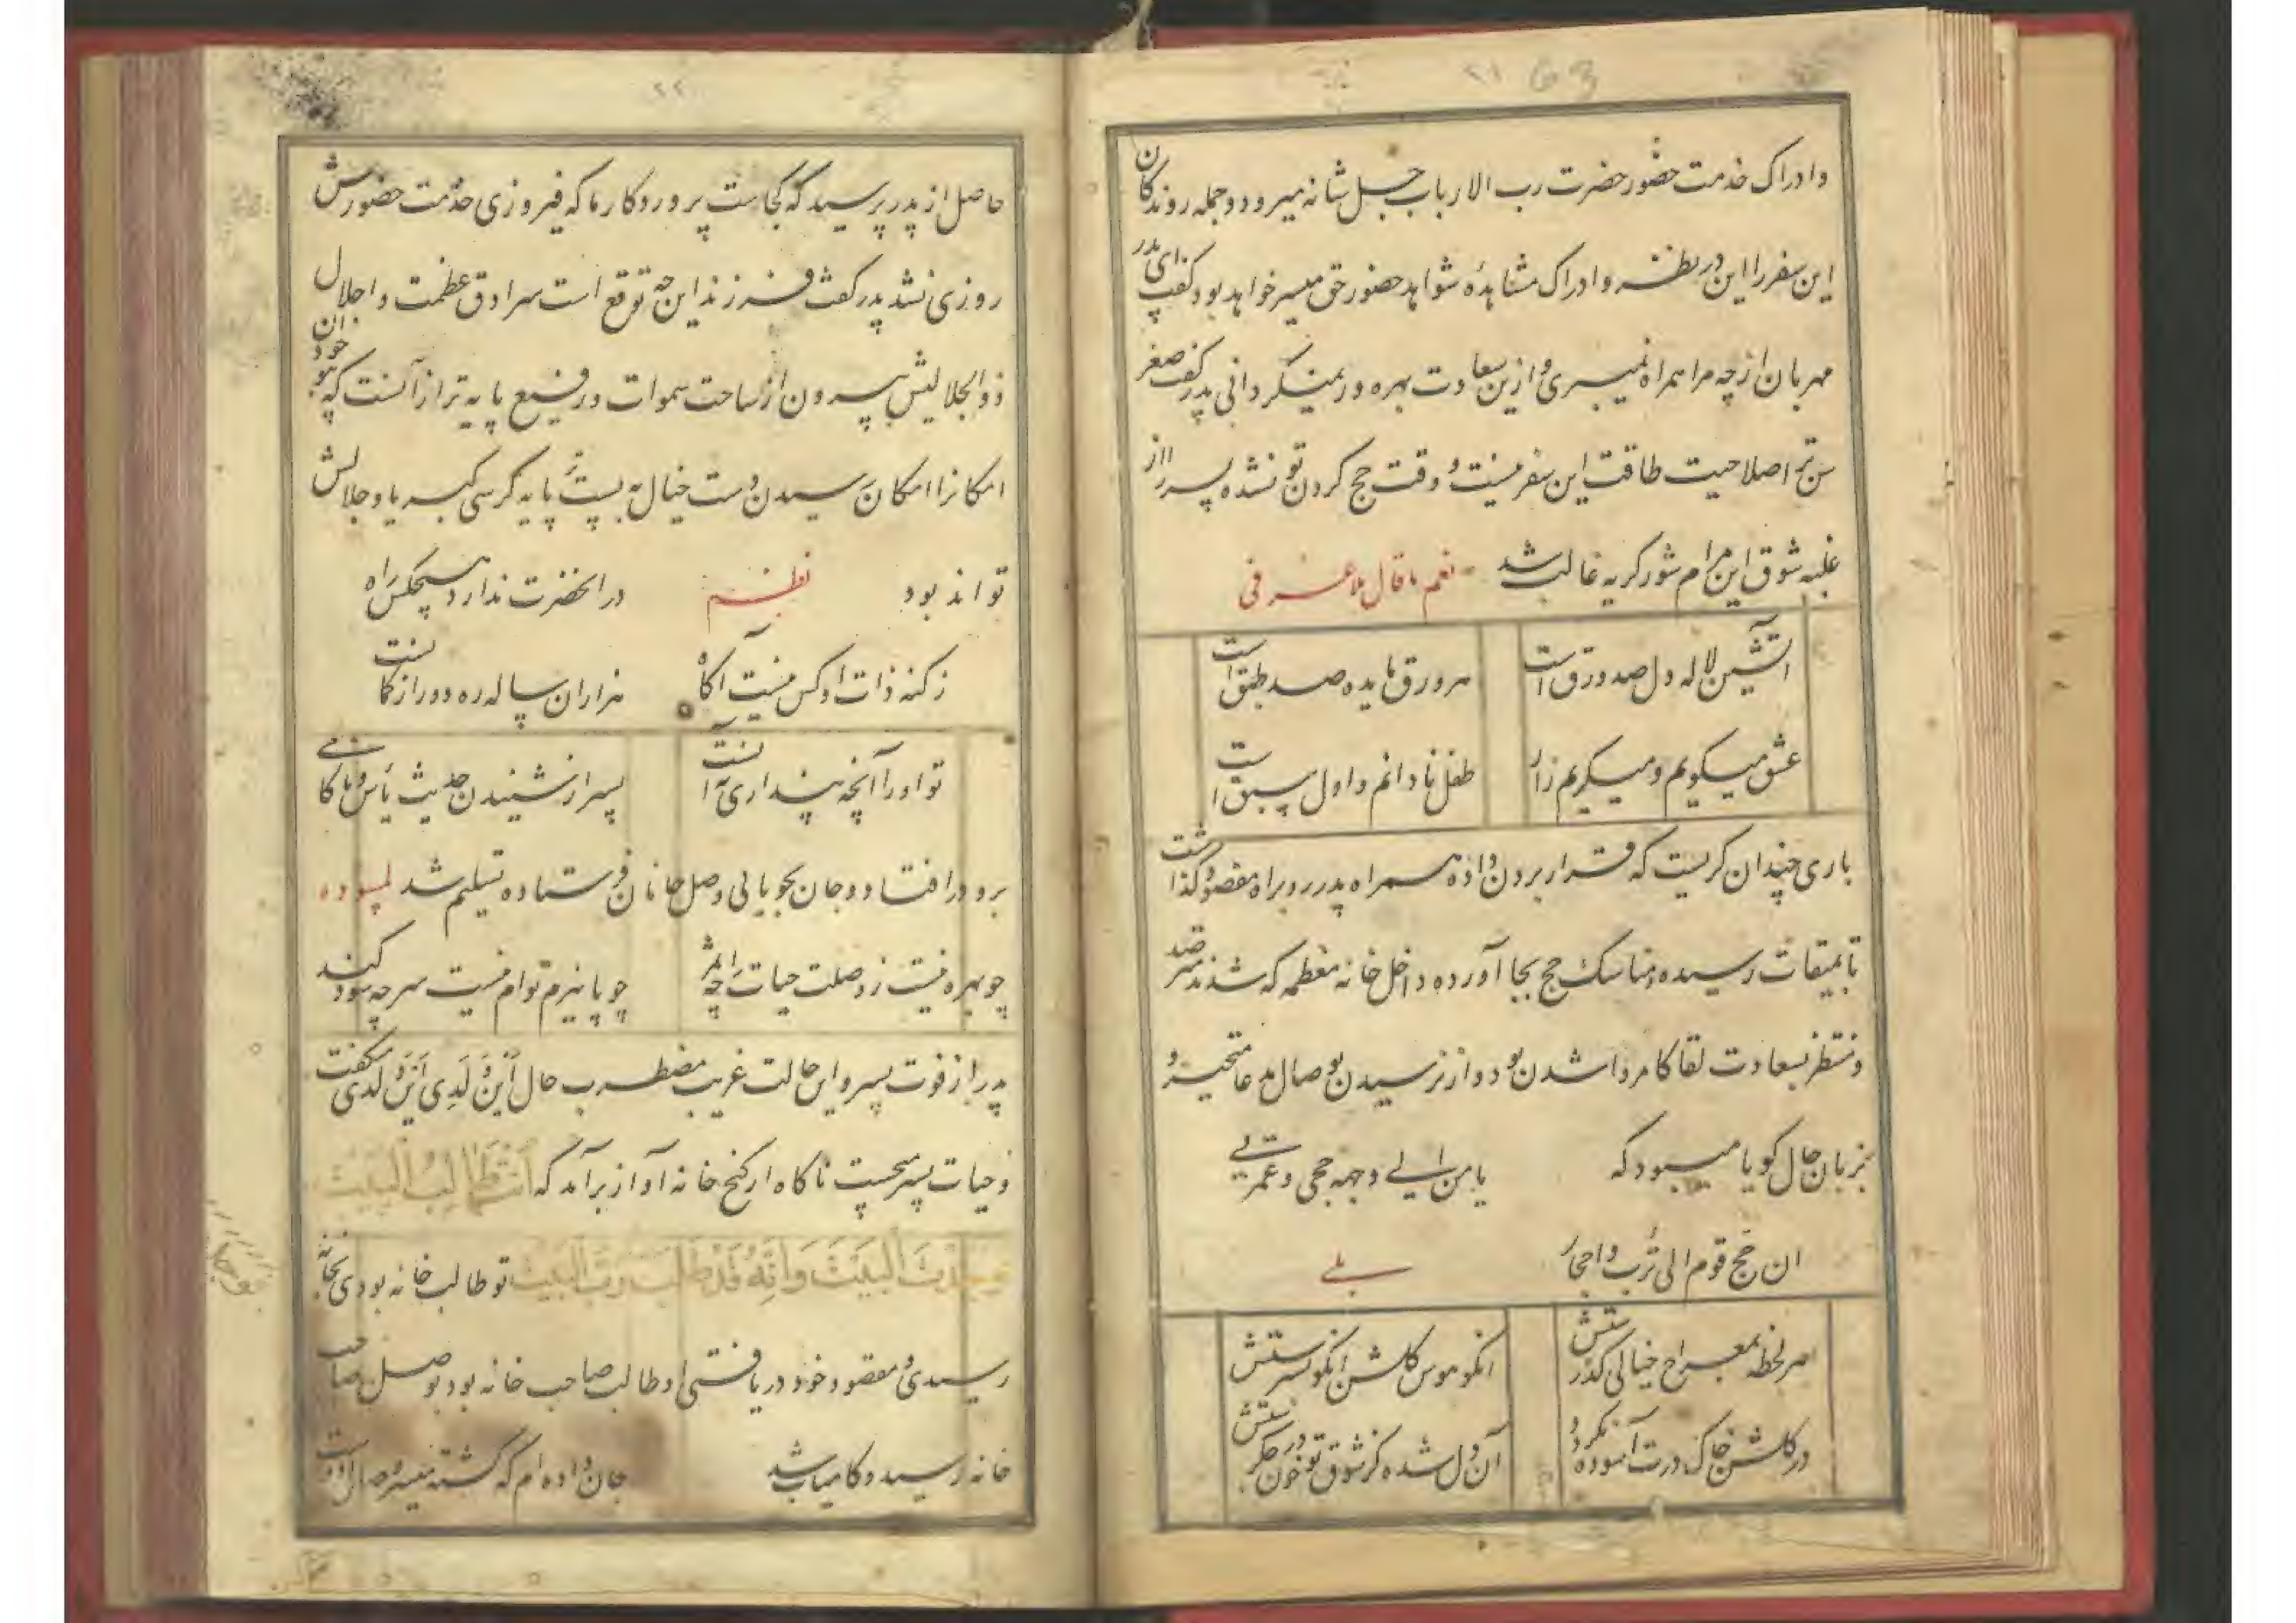 ۲۱ 63
وادراک خدمت حضور حضرت رب الارباب جل شانه میرود و جمله روندکان
این سفر را این در نظر و ادراک مشاهدهٔ شواهد حضور حق میسر خواهد بود گفت ای پدر
مهربان از چه مرا همراه نمیبری و از این سعادت بهره ور نمیگردانی پدر گفت صغر
سن ترا صلاحیت طاقت این سفر نیست و وقت حج کردن تو نشده پسر را از
غلبه شوق این مرام شور گریه غالب شد نعم ما قال ملا عرفی
آتشین لاله دل صد ورق است هر ورق مایده صد طبق است
عشق میگویم و میگریم زار طفل نادانم و اول سبق است
باری چندان گریست که قرار بردن داده همراه پدر رو براه مقصود گذاشت
تا بمیقات رسیده مناسک حج بجا آورده داخل خانه معظمه که شدند مترصد
و منتظر بسعادت لقا کامروا شدن بود و از نرسیدن بوصال مدعا متحیر و
بزبان حال گویا میبود که یا من الی وجهه حجی و عمرتی
ان حج قوم الی ترب و احجار بلی
هر لحظه بمعراج خیالی گذرستش انکو هوس گلشن انکو بسرستش
در گلشن خاک درت آسوده نگردد آن دل شده کز شوق تو خون در جگرستش
۲۲
حاصل از پدر پرسید که کجاست پروردکار ما که فیروزی خدمت حضورش
روزی نشد پدر گفت فرزند این چه توقع است سرادق عظمت و اجلال
ذوالجلالیش بیرون از ساحت سموات و رفیع پایه تر از آنست که خود آن بود
امکانرا امکان رسیدن دست خیال به پست پایه کرسی کبریا و جلالش
تواند بود نظم در آنحضرت ندارد هیچکس راه
ز کنه ذات او کس نیست آگاه هزاران ساله ره دور از گمانست
تو او را آنچه پنداری نه آنست پسر از شنیدن حدیث یأس و ناکامی
برو در افتاد و جان بجویائی وصل جانان فرستاده تسلیم شد لمسوده
چو بهره نیست ز وصلت حیات را چه اثر چو پا نیم توام نیست سر چه سود کند
پدر از فوت پسر و این حالت غریب مضطرب حال أین ولدی أین ولدی میگفت
و حیات پسر میجست ناگاه از کنج خانه آواز برآمد که أنت طالب البیت
فوجدت البیت وانه قد طلب رب البیت تو طالب خانه بودی بخانه
رسیدی و مقصود خود دریافتی او طالب صاحب خانه بود بوصل صاحب
خانه رسید و کامیاب شد جان داده ام که گشته میسر وصال دوست